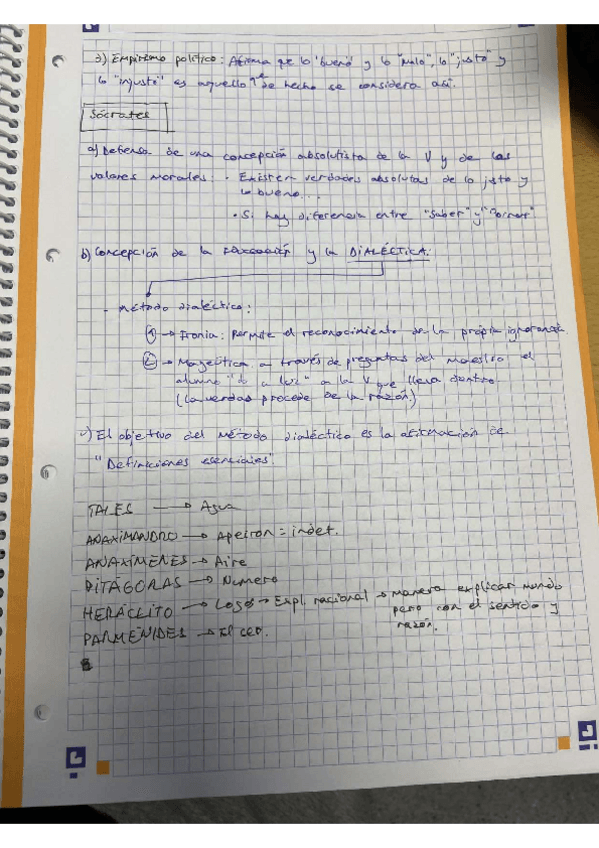 3) Empirismo político: Afirma que lo "bueno" y lo "malo", lo "justo" y
lo "injusto" es aquello que de hecho se considera así.
Sócrates
a) Defensa de una concepción absolutista de la V y de los
valores morales: • Existen verdades absolutas de lo justo y
lo bueno...
• Si hay diferencia entre "saber" y
b) Concepción de la educación y la DIALÉCTICA:
- Método dialéctico:
1 → Ironía: Permite el reconocimiento de la propia ignorancia.
2 → Mayéutica, a través de preguntas del maestro el
alumno "da a luz" a la V que lleva dentro
(La verdad procede de la razón)
c) El objetivo del método dialéctico es la de
"Definiciones esenciales".
TALES → Agua
ANAXIMANDRO → Apeiron = indet.
ANAXÍMENES → Aire
PITÁGORAS → Numero
HERÁCLITO → Logos → Expl. racional → manera explicar mundo
pero con el sentido y
razón.
PARMÉNIDES → El ser.